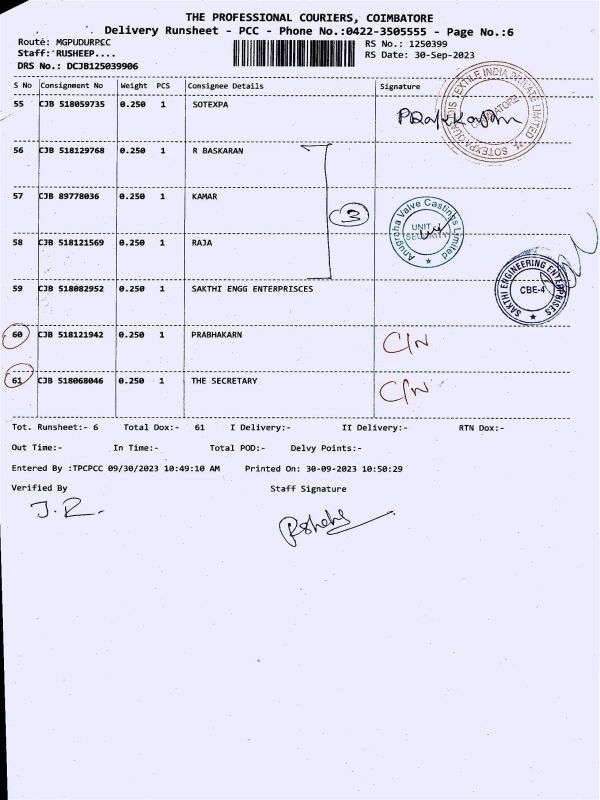 THE PROFESSIONAL COURIERS, COIMBATORE
Delivery Runsheet - PCC - Phone No.:0422-3505555 - Page No.:6
Route: MGPUDURPCC
RS No.: 1250399
Staff: RUSHEEP....
RS Date: 30-Sep-2023
DRS No.: DCJB125039906
S No Consignment No Weight PCS Consignee Details Signature
55 CJB 518059735 0.250 1 SOTEXPA
56 CJB 518129768 0.250 1 R BASKARAN
57 CJB 89778036 0.250 1 KAMAR
3
58 CJB 518121569 0.250 1 RAJA
59 CJB 518082952 0.250 1 SAKTHI ENGG ENTERPRISCES
60 CJB 518121942 0.250 1 PRABHAKARN C/N
61 CJB 518068046 0.250 1 THE SECRETARY C/N
SOTEXPA QUALIDIS TEXTILE INDIA PRIVATE LIMITED
COIMBATORE
Anugraha Valve Castings Limited
UNIT
SECURITY
SAKTHI ENGINEERING ENTERPRISES
CBE-4
Tot. Runsheet:- 6 Total Dox:- 61 I Delivery:- II Delivery:- RTN Dox:-
Out Time:- In Time:- Total POD:- Delvy Points:-
Entered By :TPCPCC 09/30/2023 10:49:10 AM Printed On: 30-09-2023 10:50:29
Verified By Staff Signature
J.R.